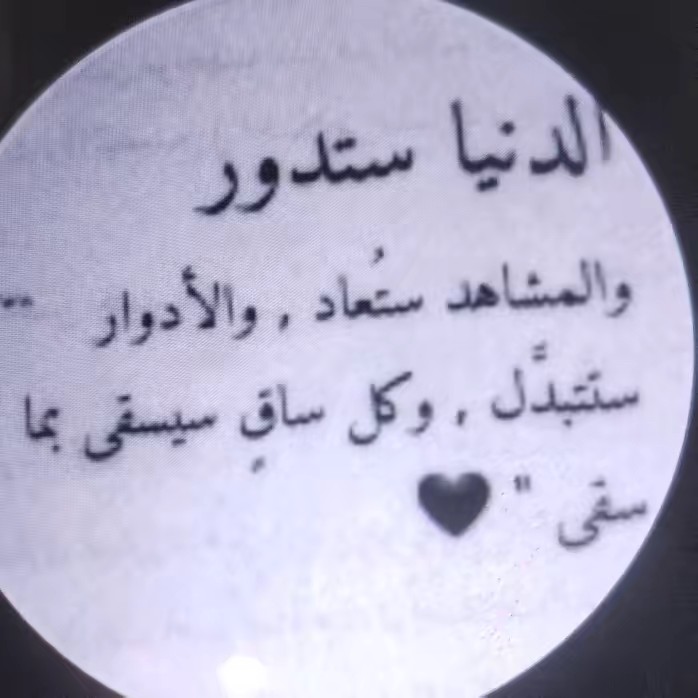 الدنيا ستدور
والمشاهد ستُعاد , والأدوار "
ستتبدَّل , وكل ساقٍ سيسقى بما
سقى " 🖤